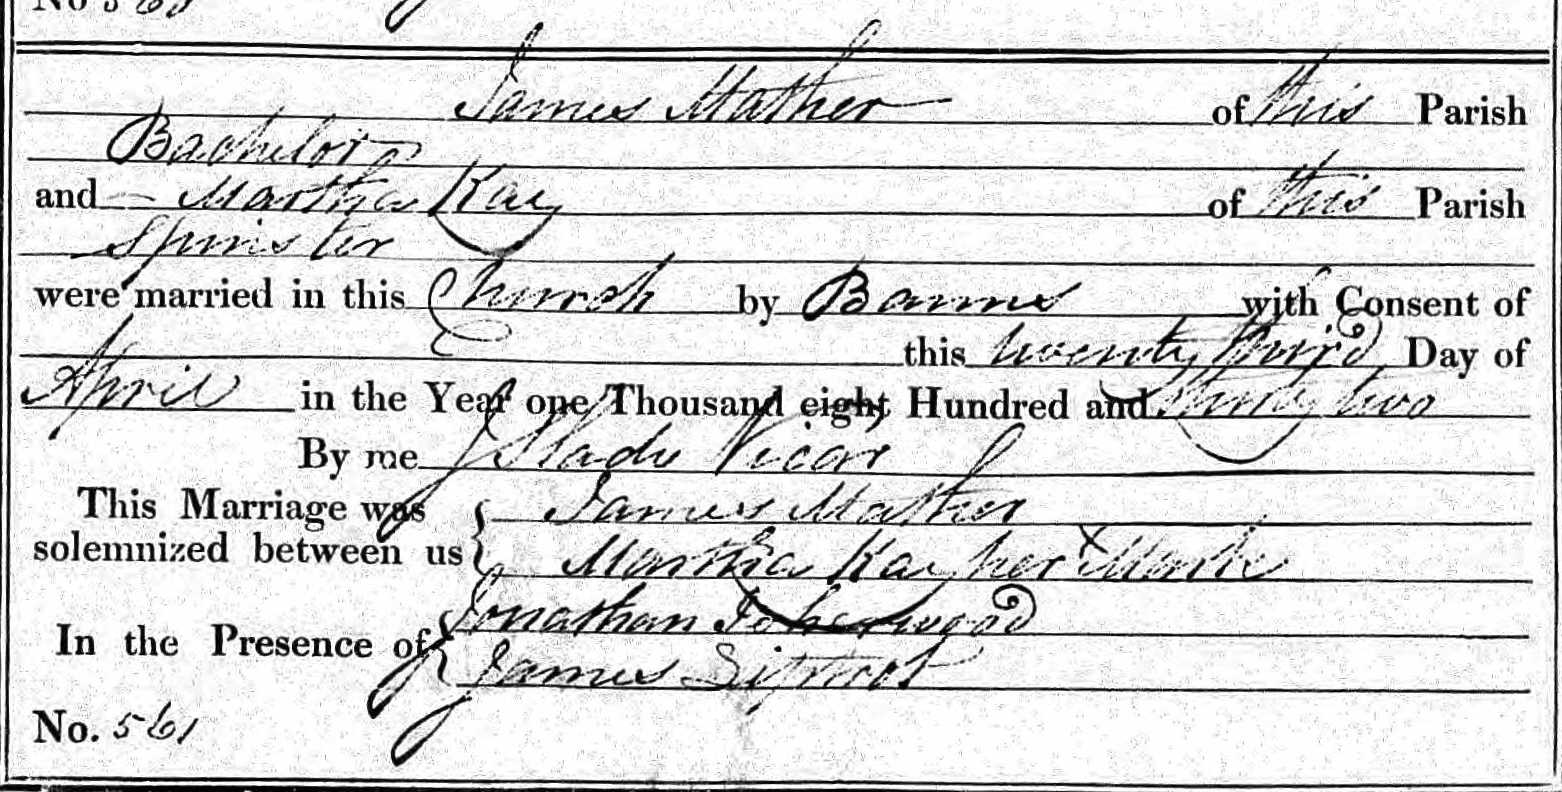 No
James Mather of this Parish
Bachelor
and Martha Kay of this Parish
Spinster
were married in this Church by Banns with Consent of
this twenty third Day of
April in the Year one Thousand eight Hundred and thirty two
By me J Slade Vicar
This Marriage was James Mather
solemnized between us Martha Kay her X Mark
Jonathan Isherwood
In the Presence of
James
No. 561